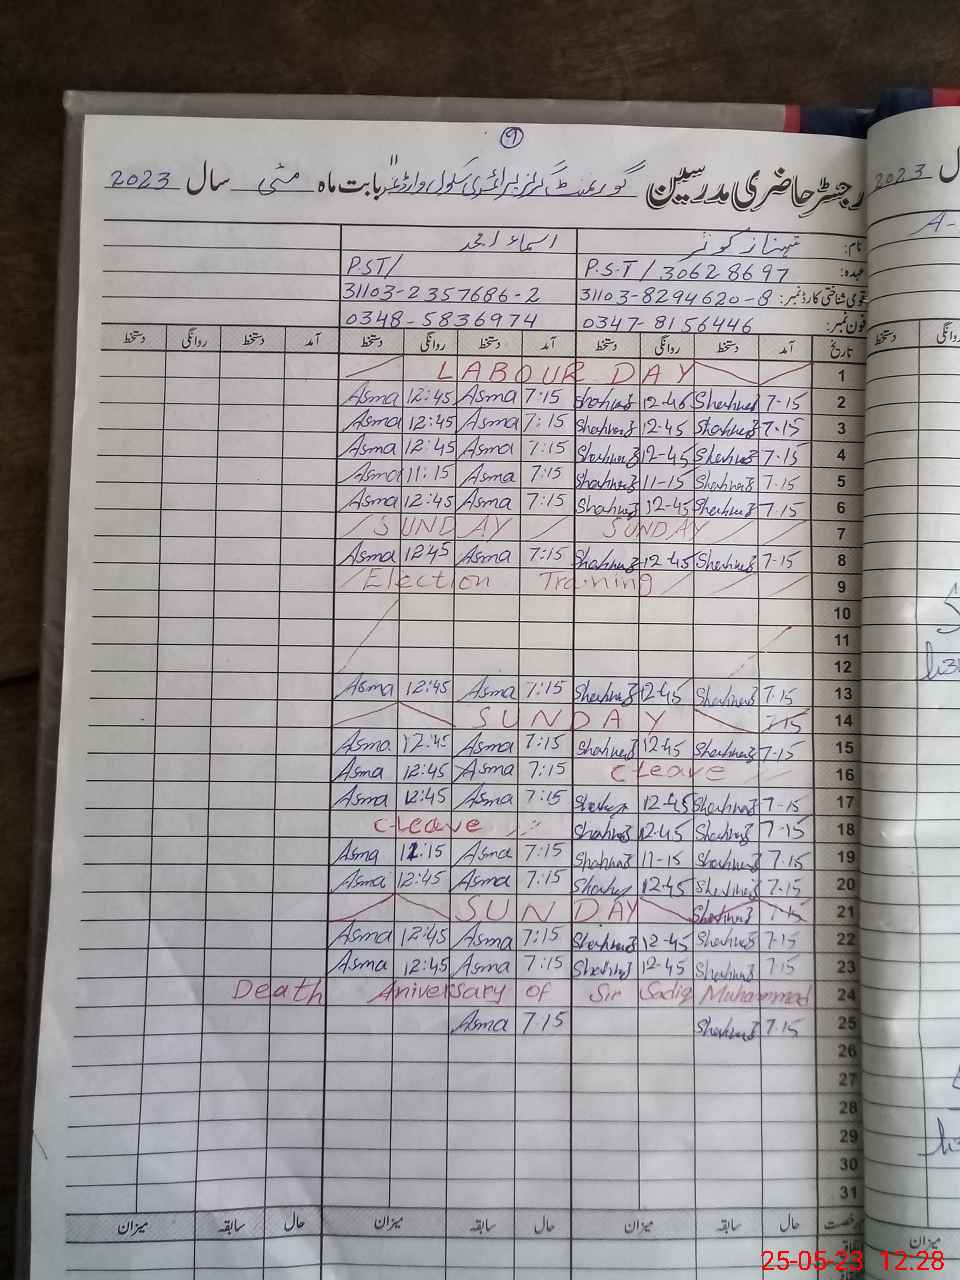 ۹
رجسٹر حاضری مدرسین گورنمنٹ گرلز پرائمری سکول وارڈ بابت ماہ مئی سال 2023
نام: شہناز کوثر اسماء امجد
عہدہ: P.S.T / 30628697 P.ST/
قومی شناختی کارڈ نمبر: 31103-8294620-8 31103-2357686-2
فون نمبر: 0347-8156446 0348-5836974
تاریخ آمد دستخط روانگی دستخط آمد دستخط روانگی دستخط آمد دستخط روانگی دستخط
LABOUR DAY 1
Asma 12:45 Asma 7:15 Shahnaz 12-45 Shahnaz 7-15 2
Asma 12:45 Asma 7:15 Shahnaz 12-45 Shahnaz 7-15 3
Asma 12:45 Asma 7:15 Shahnaz 12-45 Shahnaz 7-15 4
Asma 11:15 Asma 7:15 Shahnaz 11-15 Shahnaz 7-15 5
Asma 12:45 Asma 7:15 Shahnaz 12-45 Shahnaz 7-15 6
SUNDAY SUNDAY 7
Asma 1245 Asma 7:15 Shahnaz 12-45 Shahnaz 7-15 8
Election Training 9
10
11
12
Asma 12:45 Asma 7:15 Shahnaz 12-45 Shahnaz 7-15 13
SUNDAY 7-15 14
Asma 12:45 Asma 7:15 Shahnaz 12-45 Shahnaz 7-15 15
Asma 12:45 Asma 7:15 C-leave 16
Asma 12:45 Asma 7:15 12-45 Shahnaz 7-15 17
C-leave Shahnaz 12-45 Shahnaz 7-15 18
Asma Asma 7:15 Shahnaz 11-15 Shahnaz 7-15 19
Asma 12:45 Asma 7:15 12-45 Shahnaz 7-15 20
SUNDAY Shahnaz 7-15 21
Asma 12:45 Asma 7:15 Shahnaz 12-45 Shahnaz 7-15 22
Asma 12:45 Asma 7:15 Shahnaz 12-45 Shahnaz 7-15 23
Death Aniversary of Sir Sadiq Muhammad 24
Asma 7:15 Shahnaz 7-15 25
26
27
28
29
30
31
رخصت حال سابقہ میزان حال سابقہ میزان حال سابقہ میزان
2023
میزان
25-05-23 12.28